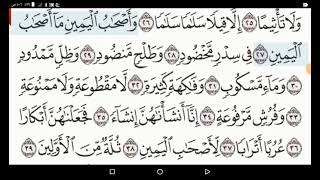 وَلَا تَأۡثِيمًا ٢٥ إِلَّا قِيلٗا سَلَٰمٗا سَلَٰمٗا ٢٦ وَأَصۡحَٰبُ ٱلۡيَمِينِ مَآ أَصۡحَٰبُ
ٱلۡيَمِينِ ٢٧ فِي سِدۡرٖ مَّخۡضُودٖ ٢٨ وَطَلۡحٖ مَّنضُودٖ ٢٩ وَظِلّٖ مَّمۡدُودٖ
٣٠ وَمَآءٖ مَّسۡكُوبٖ ٣١ وَفَٰكِهَةٖ كَثِيرَةٖ ٣٢ لَّا مَقۡطُوعَةٖ وَلَا مَمۡنُوعَةٖ
٣٣ وَفُرُشٖ مَّرۡفُوعَةٍ ٣٤ إِنَّآ أَنشَأۡنَٰهُنَّ إِنشَآءٗ ٣٥ فَجَعَلۡنَٰهُنَّ أَبۡكَارًا
٣٦ عُرُبًا أَتۡرَابٗا ٣٧ لِّأَصۡحَٰبِ ٱلۡيَمِينِ ٣٨ ثُلَّةٞ مِّنَ ٱلۡأَوَّلِينَ ٣٩